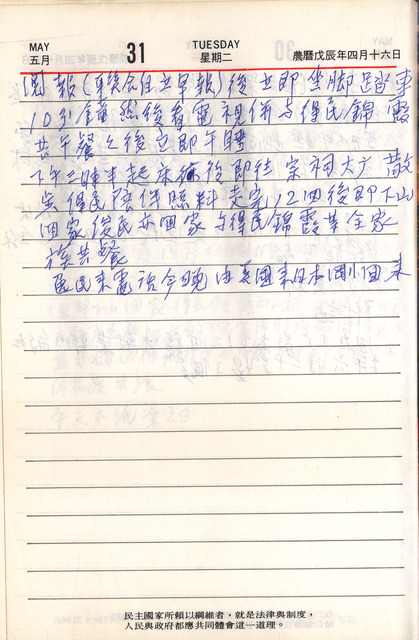 MAY
五月
31
TUESDAY
星期二
農曆戊辰年四月十六日
閱報(聯合自立早報)後立即坐脚踏車
10分鐘然後看電視併与得民錦霞
共午餐之後立即午睡
下午二時半起床後即往宗祠大广散
得民陪伴照料走完12四後即下山
回家後民亦回家与得民錦霞等全家
共餐
民來電說今晚由美國來日本回來
民主國家所賴以綱維者，就是法律與制度，
人民與政府都應共同體會這一道理。